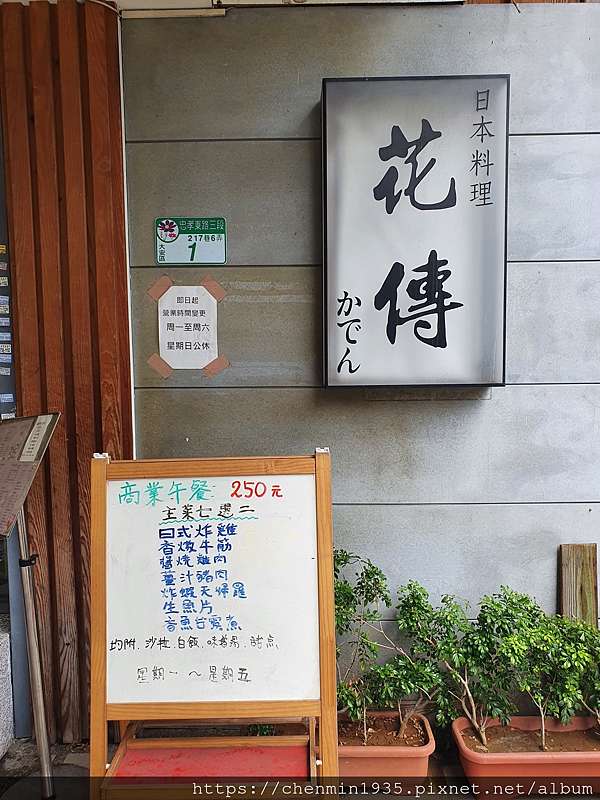 日本料理
花傳
かでん
忠孝東路三段
217巷6弄
大安區
1
即日起
營業時間變更
周一至周六
星期日公休
商業午餐 250元
主菜七選二
日式炸雞
香燉牛筋
醬燒雞肉
薑汁豬肉
炸蝦天婦羅
生魚片
香魚甘露煮
均附.沙拉.白飯.味噌湯.甜点
星期一~星期五
https://chenmin1935.pixnet.net/album